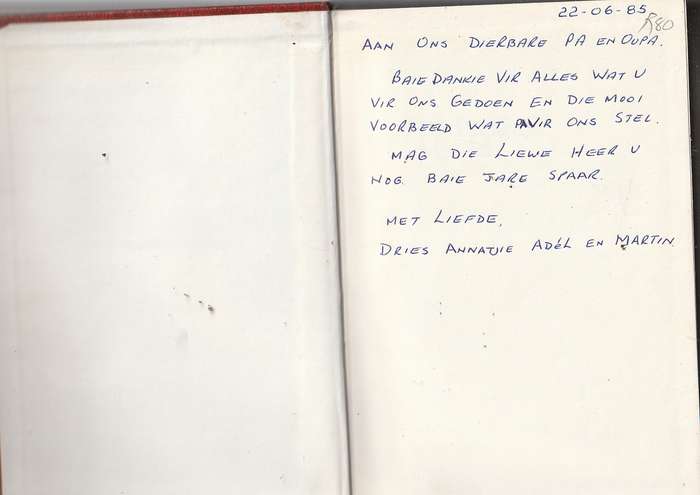 22-06-85
R80
AAN ONS DIERBARE PA EN OUPA.
BAIE DANKIE VIR ALLES WAT U
VIR ONS GEDOEN EN DIE MOOI
VOORBEELD WAT PA VIR ONS STEL.
MAG DIE LIEWE HEER U
NOG BAIE JARE SPAAR.
MET LIEFDE,
DRIES ANNATJIE ADÉL EN MARTIN.